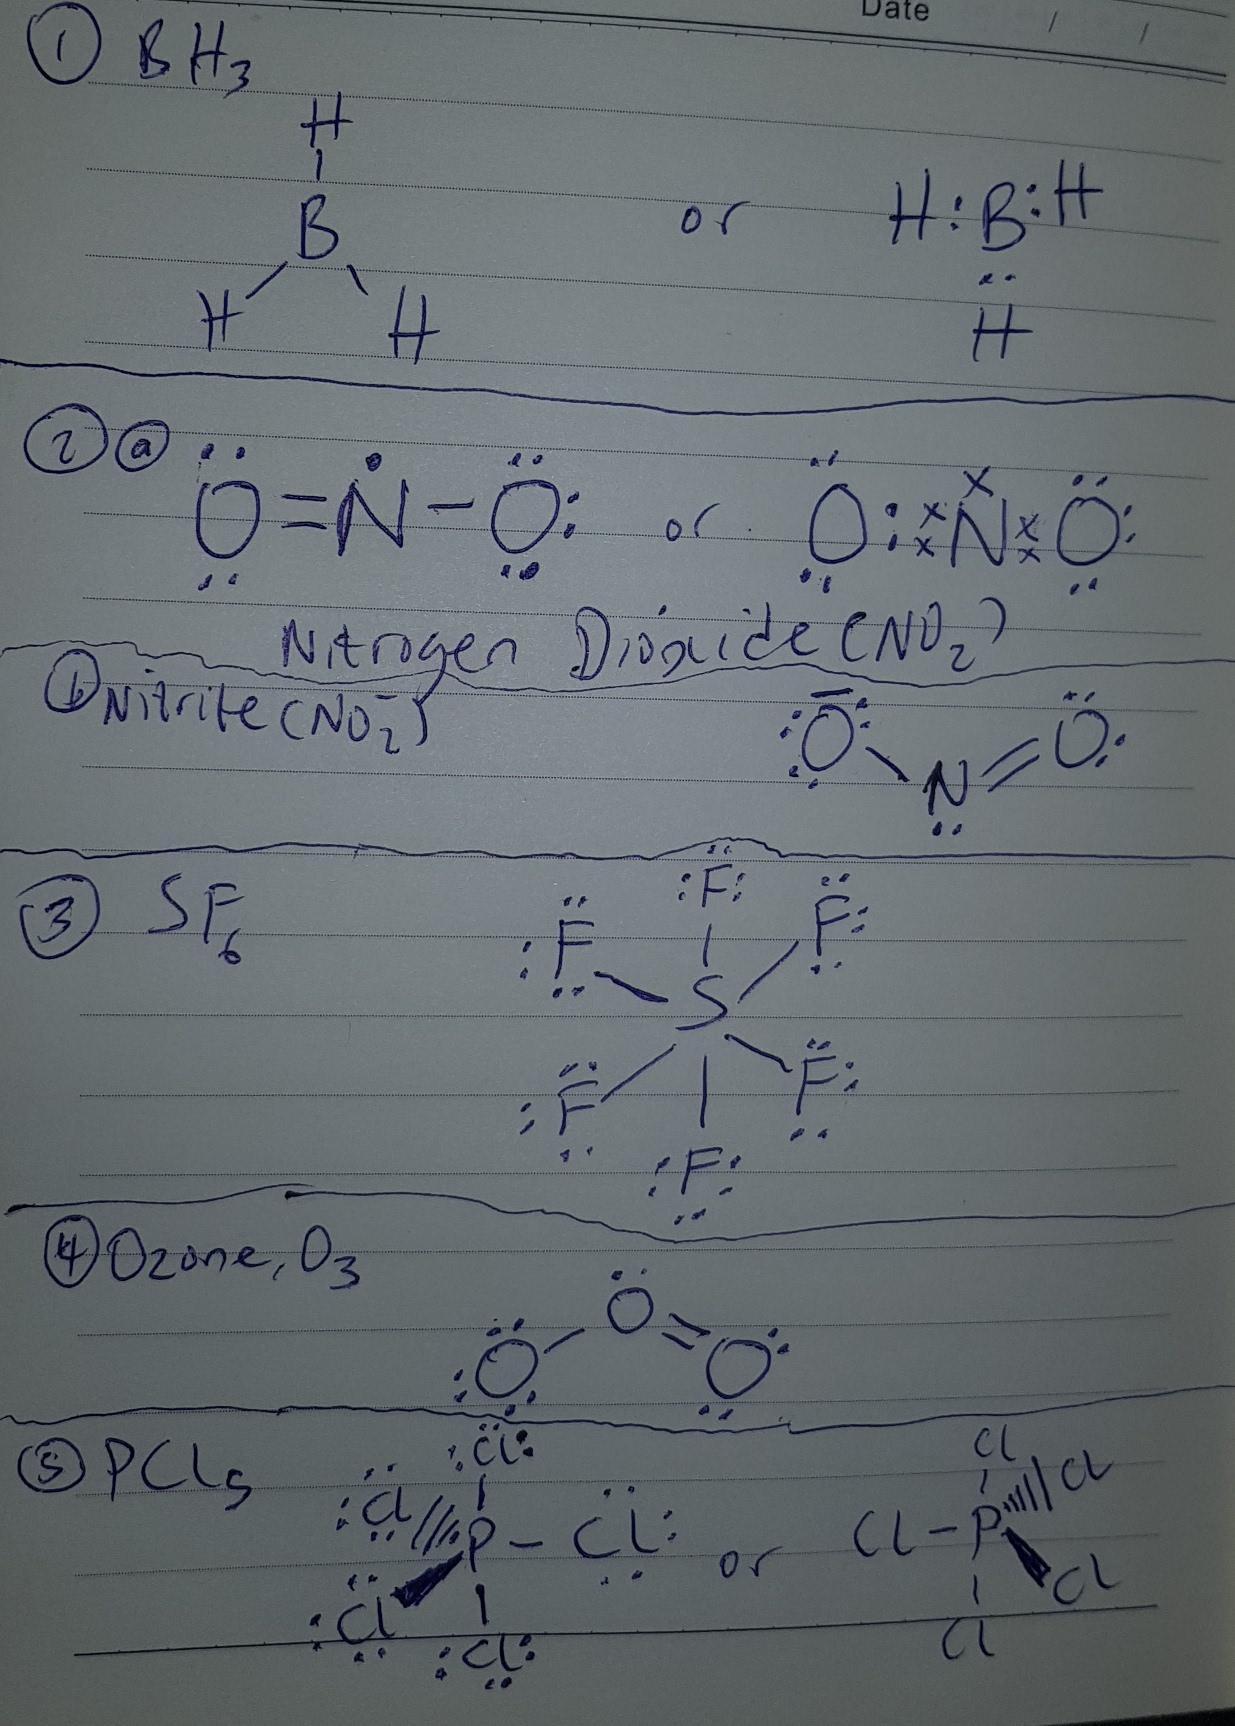 Date / /
① BH₃
H
B
H H
or
H:B:H
..
H
② ⓐ
O=N-O:
or
O::xxNxxO:
Nitrogen Dioxide (NO₂)
ⓑ Nitrite (NO₂⁻)
:O: N=O:
③ SF₆
:F:
:F F:
S
:F F:
:F:
④ Ozone, O₃
O
:O O
⑤ PCl₅
:Cl:
:Cl P - Cl:
:Cl
:Cl:
or
Cl
Cl
Cl-P
Cl
Cl